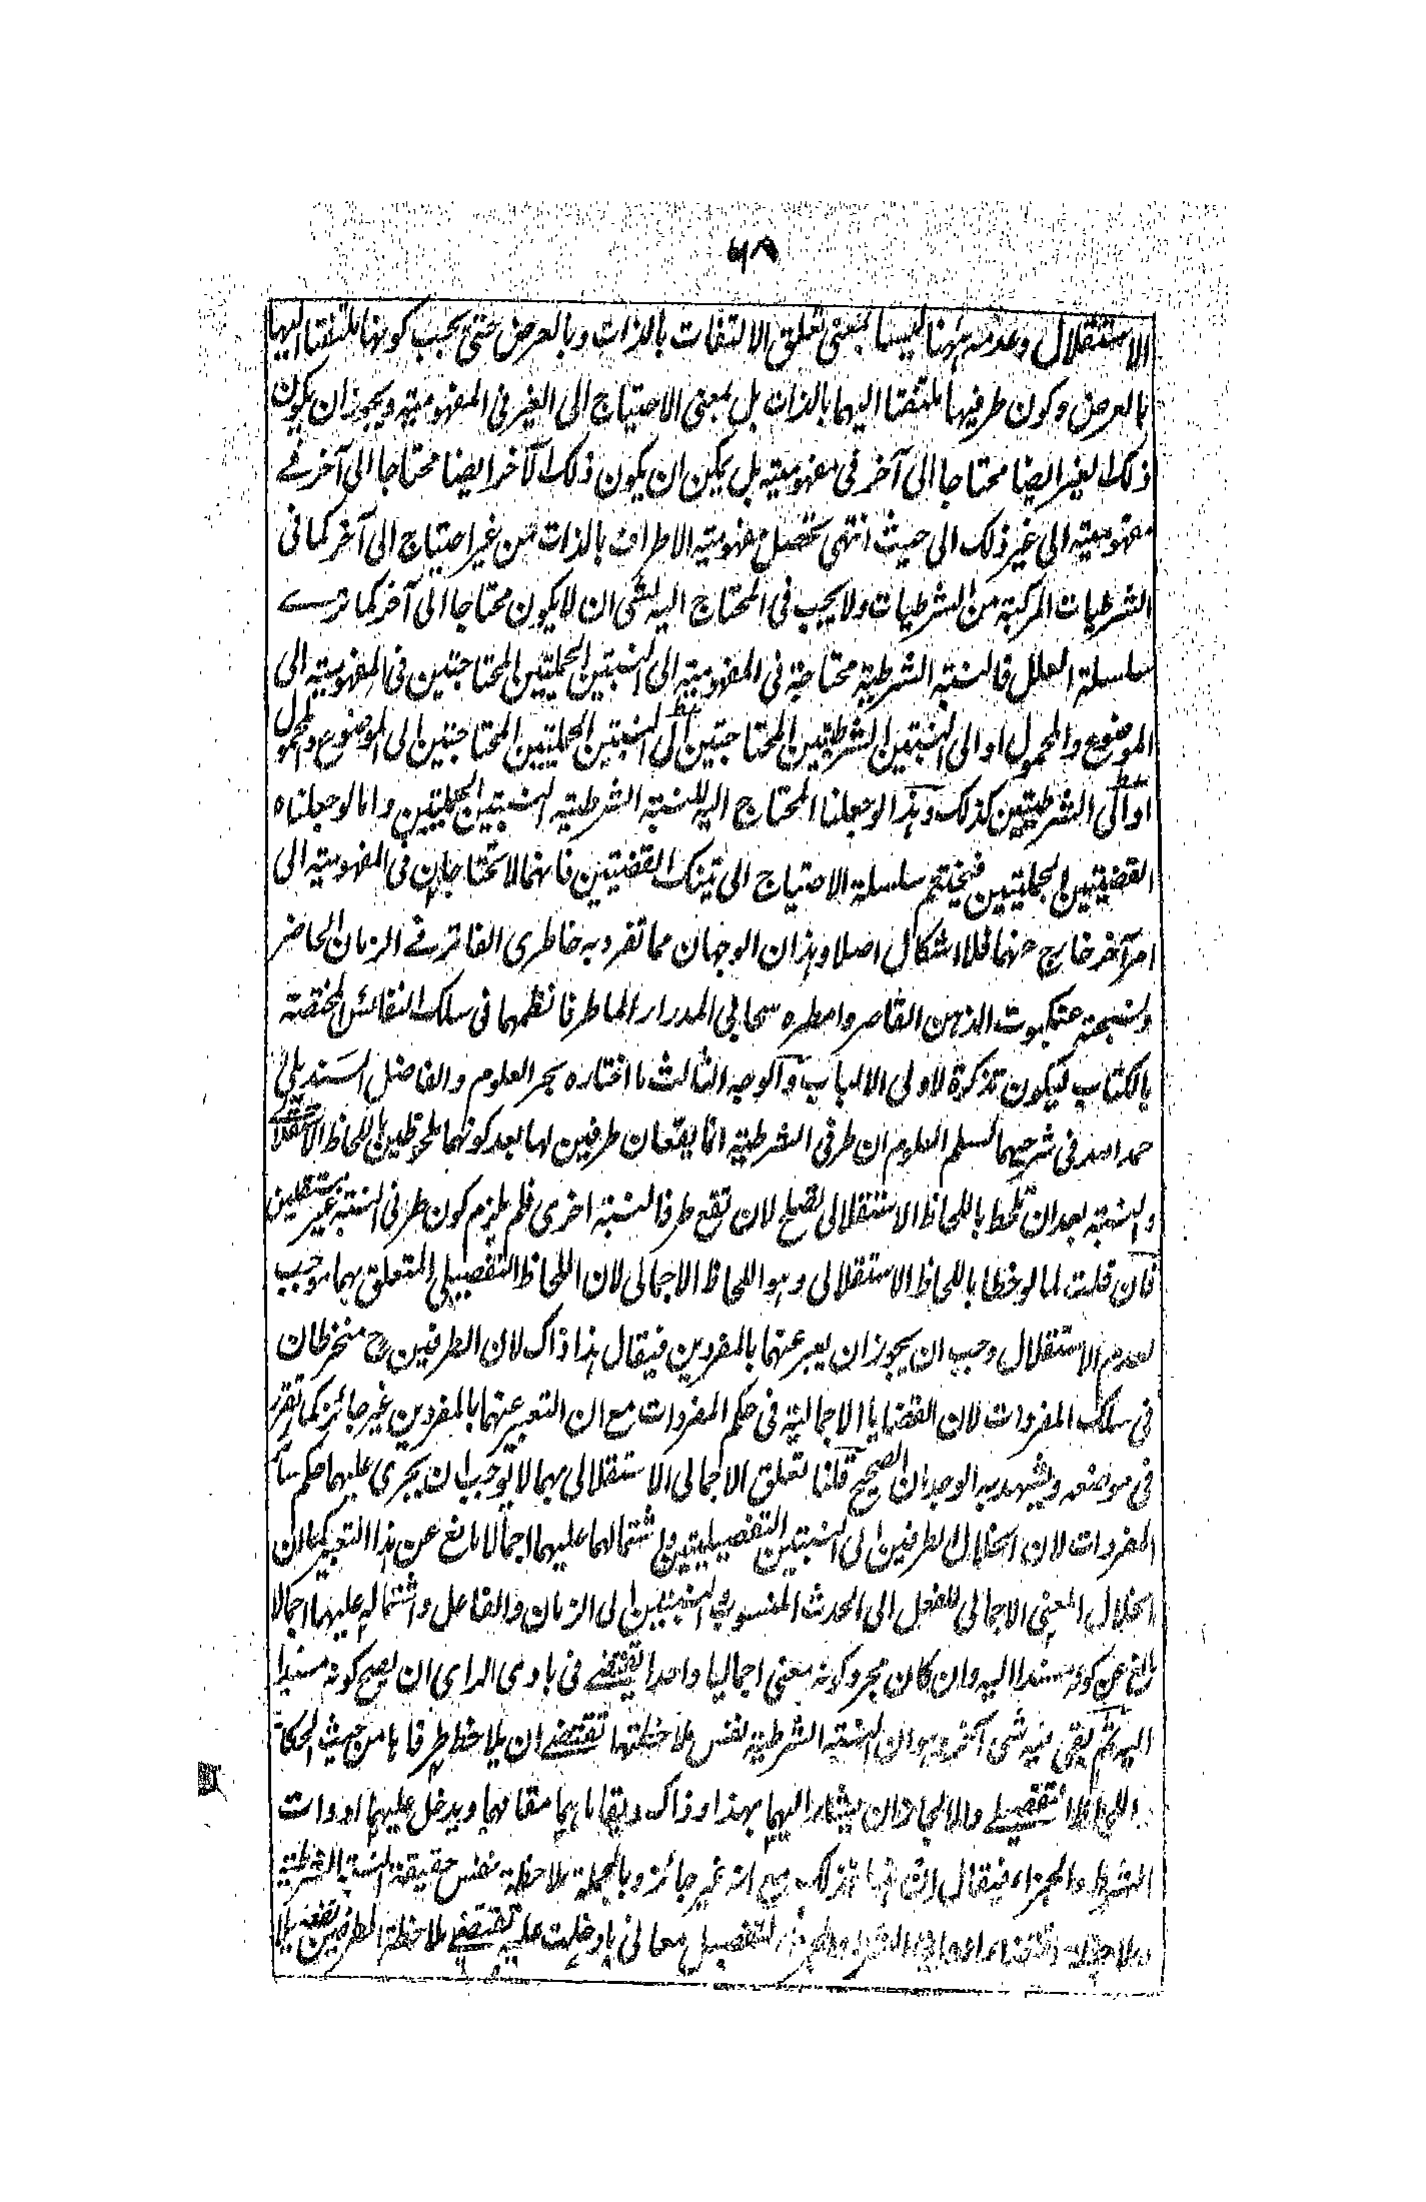 ٧٨
الاستقلال وعدمه ههنا ليسا بمعنى تعلق الالتفات بالذات وبالعرض حتى يجب كونها ملتفتا اليها
بالعرض وكون طرفيها ملتفتا اليهما بالذات بل بمعنى الاحتياج الى الغير فى المفهومية ويجوز ان يكون
ذلك الغير ايضا محتاجا الى آخر فى مفهوميته بل يمكن ان يكون ذلك الآخر ايضا محتاجا الى آخر فے
مفهوميته الى غير ذلك الى حيث انتهى تحصل مفهومية الاطراف بالذات من غير احتياج الى آخر كما فى
الشرطيات المركبة من الشرطيات ولا يجب فى المحتاج اليه لشى ان لا يكون محتاجا الى آخر كما ترے
سلسلة العلل فالنسبة الشرطية محتاجة فى المفهومية الى النسبتين الحمليتين المحتاجتين فى المفهومية الى
الموضوع والمحمول او الى النسبتين الشرطيتين المحتاجتين الى النسبتين الحمليتين المحتاجتين الى الموضوع والمحمول
او الى الشرطيتين كذلك وهذا لو جعلنا المحتاج اليه للنسبة الشرطية النسبتين الحمليتين واما لو جعلناه
القضيتين الحمليتين فيختتم سلسلة الاحتياج الى تينك القضيتين فانهما لا تحتاجان فى المفهومية الى
امر آخر خارج عنهما فلا اشكال اصلا وهذان الوجهان مما تفرد به خاطرى الفاتر فے الزمان الحاضر
ونسجته عنكبوت الذهن القاصر وامطره سحابى المدرار الماطر فانظمهما فى سلك النفائس المختصة
بالكتاب ليكون تذكرة لاولى الالباب والوجه الثالث ما اختاره بحر العلوم والفاضل السنديلى
حمد الله فى شرحيهما لسلم العلوم ان طرفى الشرطية انما يقعان طرفين لها بعد كونهما ملحوظين باللحاظ الاستقلالى
والنسبة بعد ان تلحظ باللحاظ الاستقلالى تصلح لان تقع طرفا لنسبة اخرى فلم يلزم كون طرفى النسبة غير مستقلين
فان قلت لما لوحظا باللحاظ الاستقلالى وهو اللحاظ الاجمالى لان اللحاظ التفصيلى المتعلق بهما موجب
لعدم الاستقلال وجب ان يجوز ان يعبر عنهما بالمفردين فيقال هذا ذاك لان الطرفين ح منخرطان
فى سلك المفردات لان القضايا الاجمالية فى حكم المفردات مع ان التعبير عنهما بالمفردين غير جائز كما تقرر
فى موضعه ويشهد به الوجدان الصحيح قلنا تعلق الاجمالى الاستقلالى بهما لا يوجب ان يجرى عليهما حكم سائر
المفردات لان انحلال الطرفين الى النسبتين التفصيليتين واشتمالهما عليهما اجمالا مانع عن هذا التعبير كما ان
انحلال المعنى الاجمالى للفعل الى الحدث المنسوب النسبتين الى الزمان والفاعل واشتماله عليهما اجمالا
مانع عن كونه مسندا اليه وان كان مجرد كونه معنى اجماليا واحدا يقتضے فى بادى الراى ان يصح كونه مسندا
اليه ثم بقى فيه شى آخر وهو ان النسبة الشرطية نفس ملاحظتها تقتضے ان يلاحظ طرفاها من حيث الحكاية
التفصيلے والا لجاز ان يشار اليهما بهذا وذاك ويقاماهما مقامهما ويدخل عليهما ادوات
الشرط والجزاء فيقال ان هذا فذلك مع انه غير جائز وبالجملة ملاحظة نفس حقيقة النسبة الشرطية
التفصيل معانى ما دخلت عليه تقتضے ملاحظة الطرفين